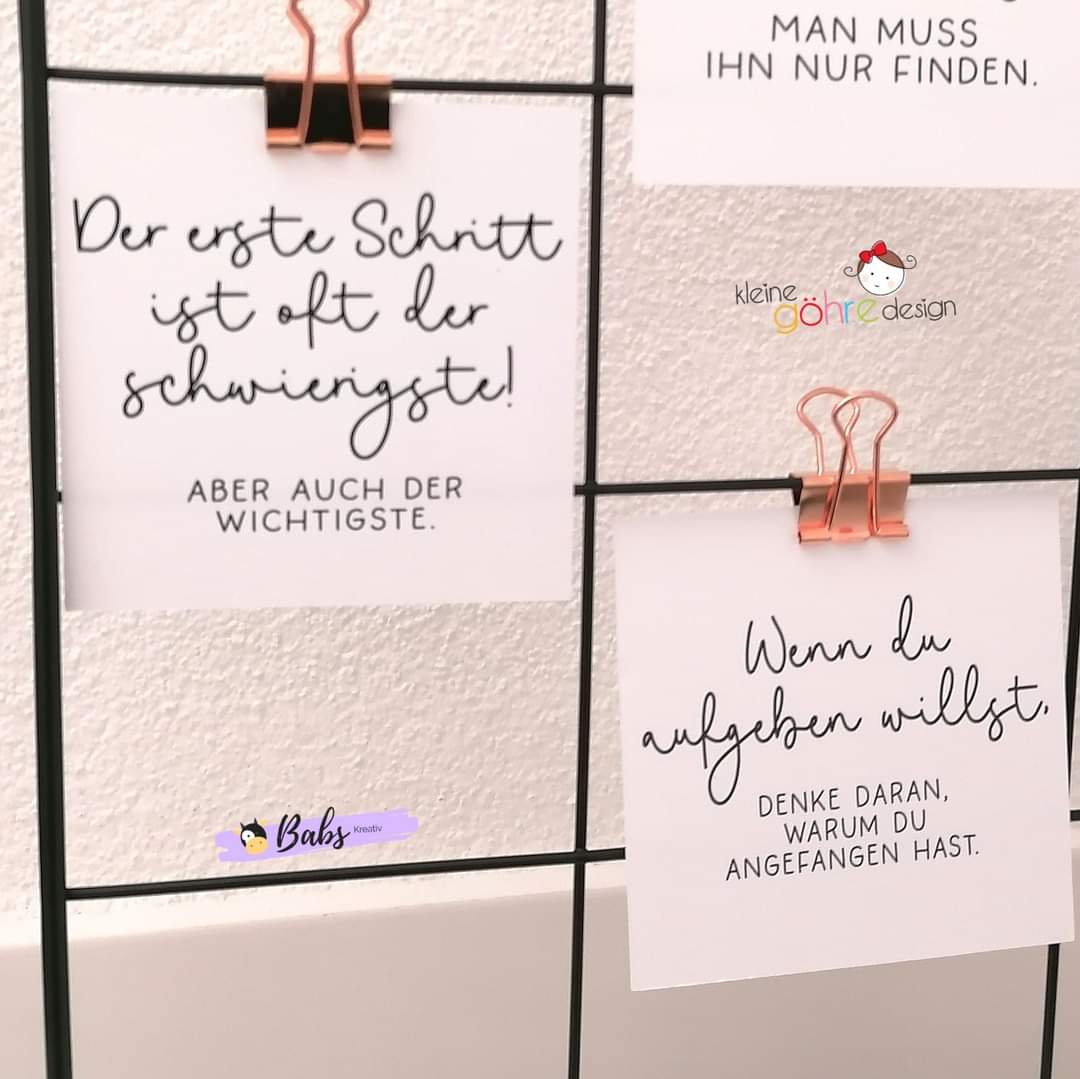 MAN MUSS
IHN NUR FINDEN.
Der erste Schritt
ist oft der
schwierigste!
ABER AUCH DER
WICHTIGSTE.
kleine
göhre design
Wenn du
aufgeben willst,
DENKE DARAN,
WARUM DU
ANGEFANGEN HAST.
Babs Kreativ